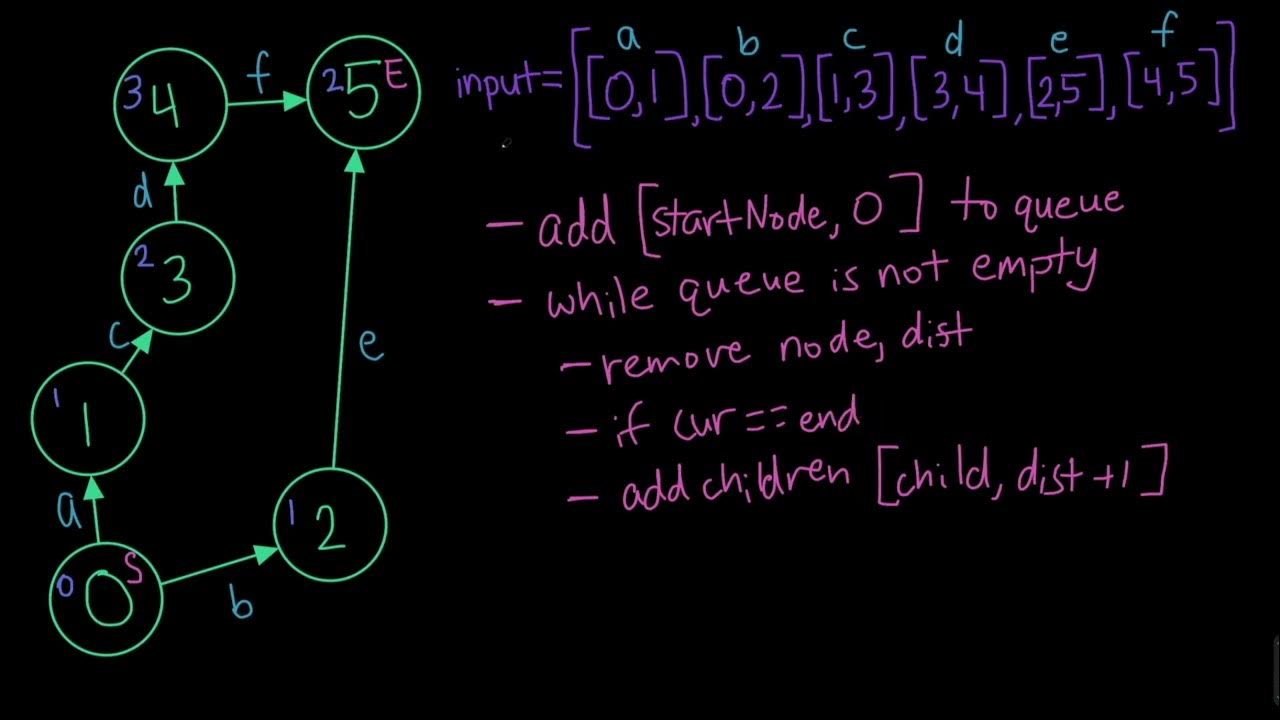 a b c d e f
input=[[0,1],[0,2],[1,3],[3,4],[2,5],[4,5]]
- add [startNode, 0] to queue
- while queue is not empty
- remove node, dist
- if cur==end
- add children [child, dist+1]
3 4
f
2 5 E
d
2 3
c
e
1 1
a
1 2
0 0 S
b